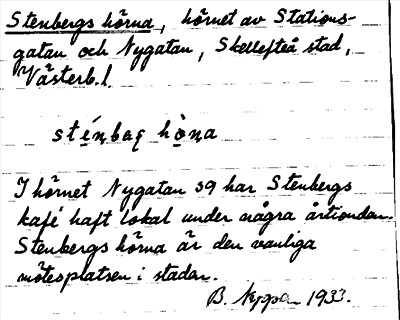 Stenbergs hörna, hörnet av Stations-
gatan och Nygatan, Skellefteå stad,
Västerb.l.
sténbaʂ hò̩ɳa
I hörnet Nygatan 39 har Stenbergs
kafé haft lokal under några årtionden.
Stenbergs hörna är den vanliga
mötesplatsen i staden.
B. 1933.